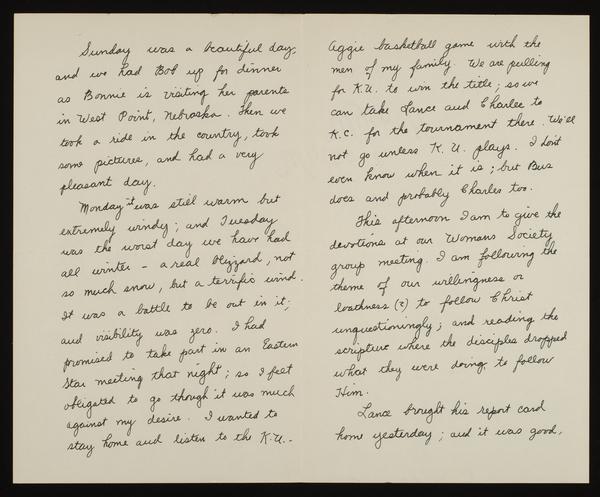 Sunday was a beautiful day,
and we had Bob up for dinner
as Bonnie is visiting her parents
in West Point, Nebraska. Then we
took a ride in the country, took
some pictures, and had a very
pleasant day.
Monday it was still warm but
extremely windy; and Tuesday
was the worst day we have had
all winter - a real blizzard, not
so much snow, but a terrific wind.
It was a battle to be out in it;
and visibility was zero. I had
promised to take part in an Eastern
Star meeting that night; so I felt
obligated to go though it was much
against my desire. I wanted to
stay home and listen to the K.U.-
Aggie basketball game with the
men of my family. We are pulling
for K.U. to win the title; so we
can take Lance and Charlee to
K.C. for the tournament there. We'll
not go unless K.U. plays. I don't
even know when it is; but Bus
does and probably Charles too.
This afternoon I am to give the
devotions at our Womans Society
group meeting. I am following the
theme of our willingness or
loathness (?) to follow Christ
unquestioningly; and reading the
scripture where the disciples dropped
what they were doing, to follow
Him.
Lance brought his report card
home yesterday; and it was good,